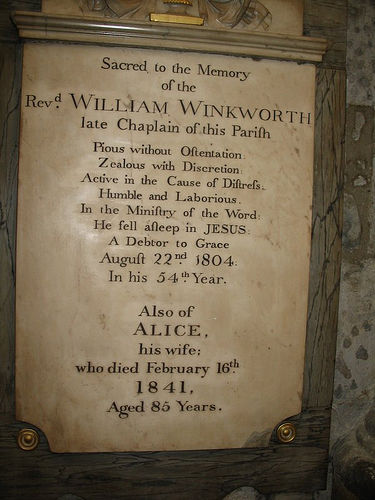 Sacred to the Memory
of the
Rev.d WILLIAM WINKWORTH
late Chaplain of this Pariſh
Pious without Oſtentation.
Zealous with Discretion:
Active in the Cause of Diſtreſs.
Humble and Laborious.
In the Miniſtry of the Word:
He fell aſleep in JESUS:
A Debtor to Grace
Auguſt 22nd 1804.
In his 54th Year.
Also of
ALICE,
his wife;
who died February 16th
1841,
Aged 85 Years.